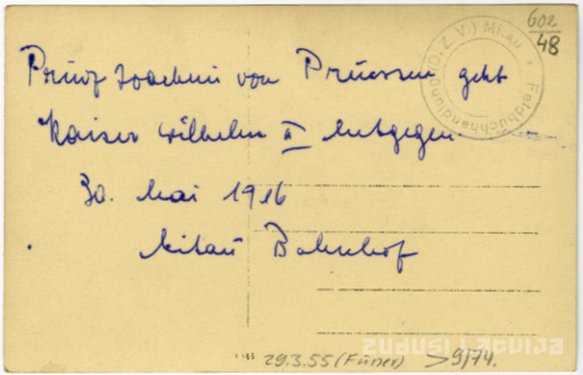 602
48
Feldbuchhandlung (O. Z. V.) Mitau *
Prinz Joachim von Preussen geht
Kaiser Wilhelm II entgegen
30. Mai 1916
Mitau Bahnhof
29.3.55 (Füner) > 9/74.
zudusi Latvija